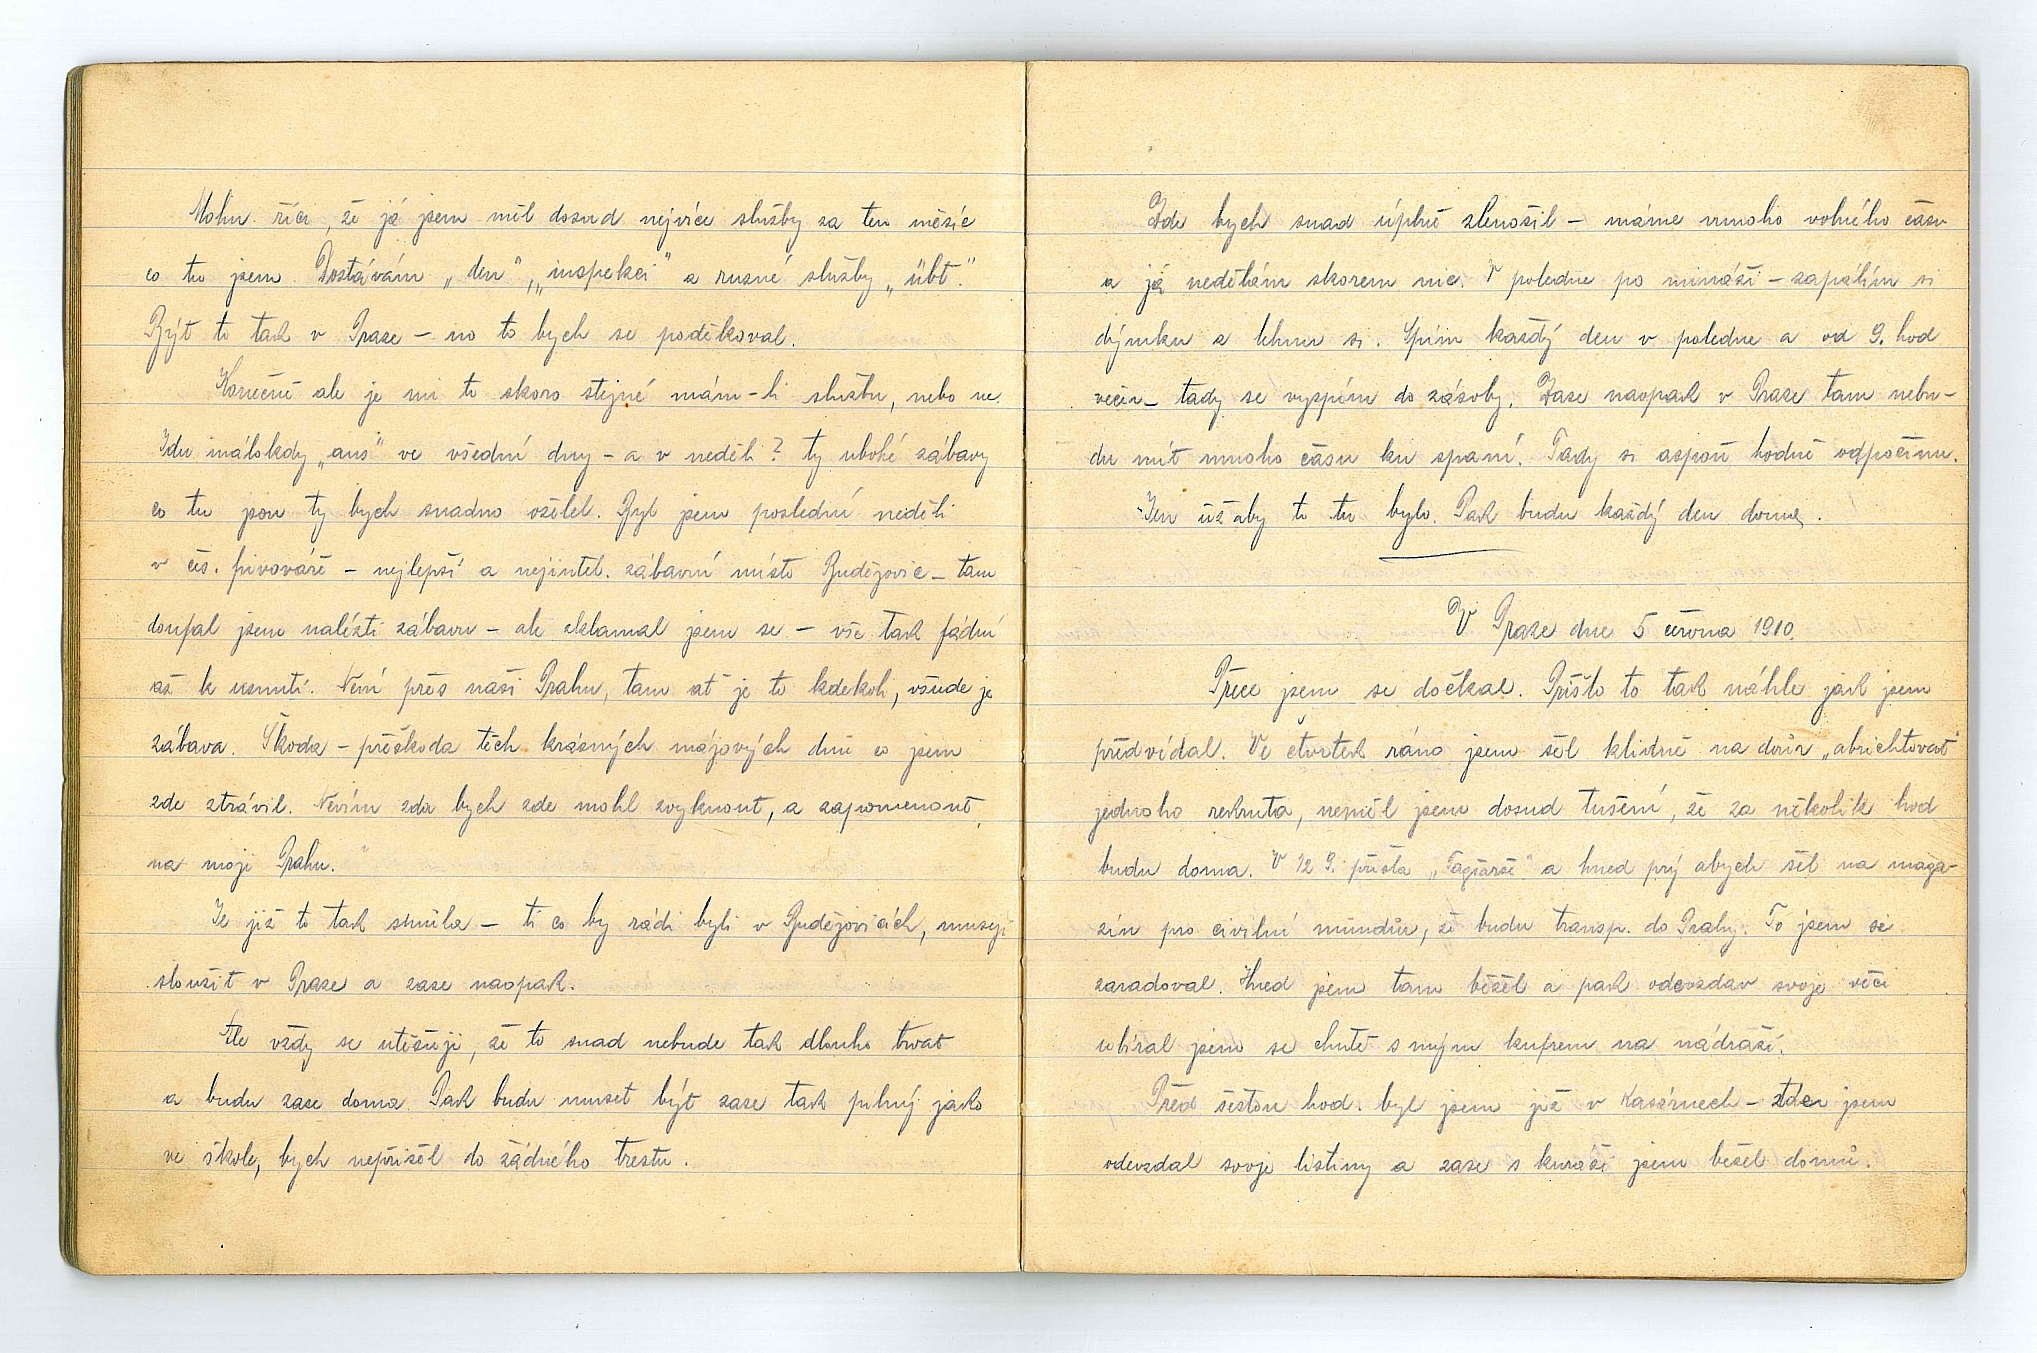 Mohu říci, že já jsem měl dosud nejvíce služby za ten měsíc
co tu jsem. Dostávám „den“, „inspekci“ a rusné služby „übt.“
Být to tak v Praze – no to bych se poděkoval.
Konečně ale je mi to skoro stejné mám-li službu, nebo ne.
Jdu málokdy „aus“ ve všední dny – a v neděli? ty ubohé zábavy
co tu jsou ty bych snadno oželel. Byl jsem poslední neděli
v čes. pivováře – nejlepší a nejintel. zábavní místo Budějovic – tam
doufal jsem nalézti zábavu – ale zklamal jsem se – vše tak fádní
až k usnutí. Není přes naši Prahu, tam ať je to kdekoli, všude je
zábava. Škoda – přeškoda těch krásných májových dnů co jsem
zde ztrávil. Nevím zda bych zde mohl zvyknout, a zapomenout
na moji Prahu.“
Je již to tak smůla – ti co by rádi byli v Budějovicích, musejí
sloužit v Praze a zase naopak.
Ale vždy se utěšuji, že to snad nebude tak dlouho trvat
a budu zase doma. Pak budu muset být zase tak pilný jako
ve škole, bych nepřišel do žádného trestu.
Zde bych snad úplně zlenošil – máme mnoho volného času
a já nedělám skorem nic. V poledne po mináži – zapálím si
dýmku a lehnu si. Spím každý den v poledne a od 9. hod
večer – tady se vyspím do zásoby. Zase naopak v Praze tam nebu-
du mít mnoho času ku spaní. Tady si aspoň hodně odpočinu.
Jen už aby to tu bylo. Pak budu každý den doma.
V Praze dne 5 června 1910.
Přece jsem se dočkal. Přišlo to tak náhle jak jsem
předvídal. Ve čtvrtek ráno jsem šel klidně na dvůr „abrichtovat“
jednoho rekruta, neměl jsem dosud tušení, že za několik hod
budu doma. V 12 9. přišla „Tagčarše“ a hned prý abych šel na maga-
zín pro civilní mundůr, že budu transp. do Prahy. To jsem se
zaradoval. Hned jsem tam běžel a pak odevzdav svoje věci
ubíral jsem se chutě s mým kufrem na nádraží.
Před šestou hod. byl jsem již v kasárnech – zde jsem
odevzdal svoje listiny a zase s kuráží jsem běžel domů.